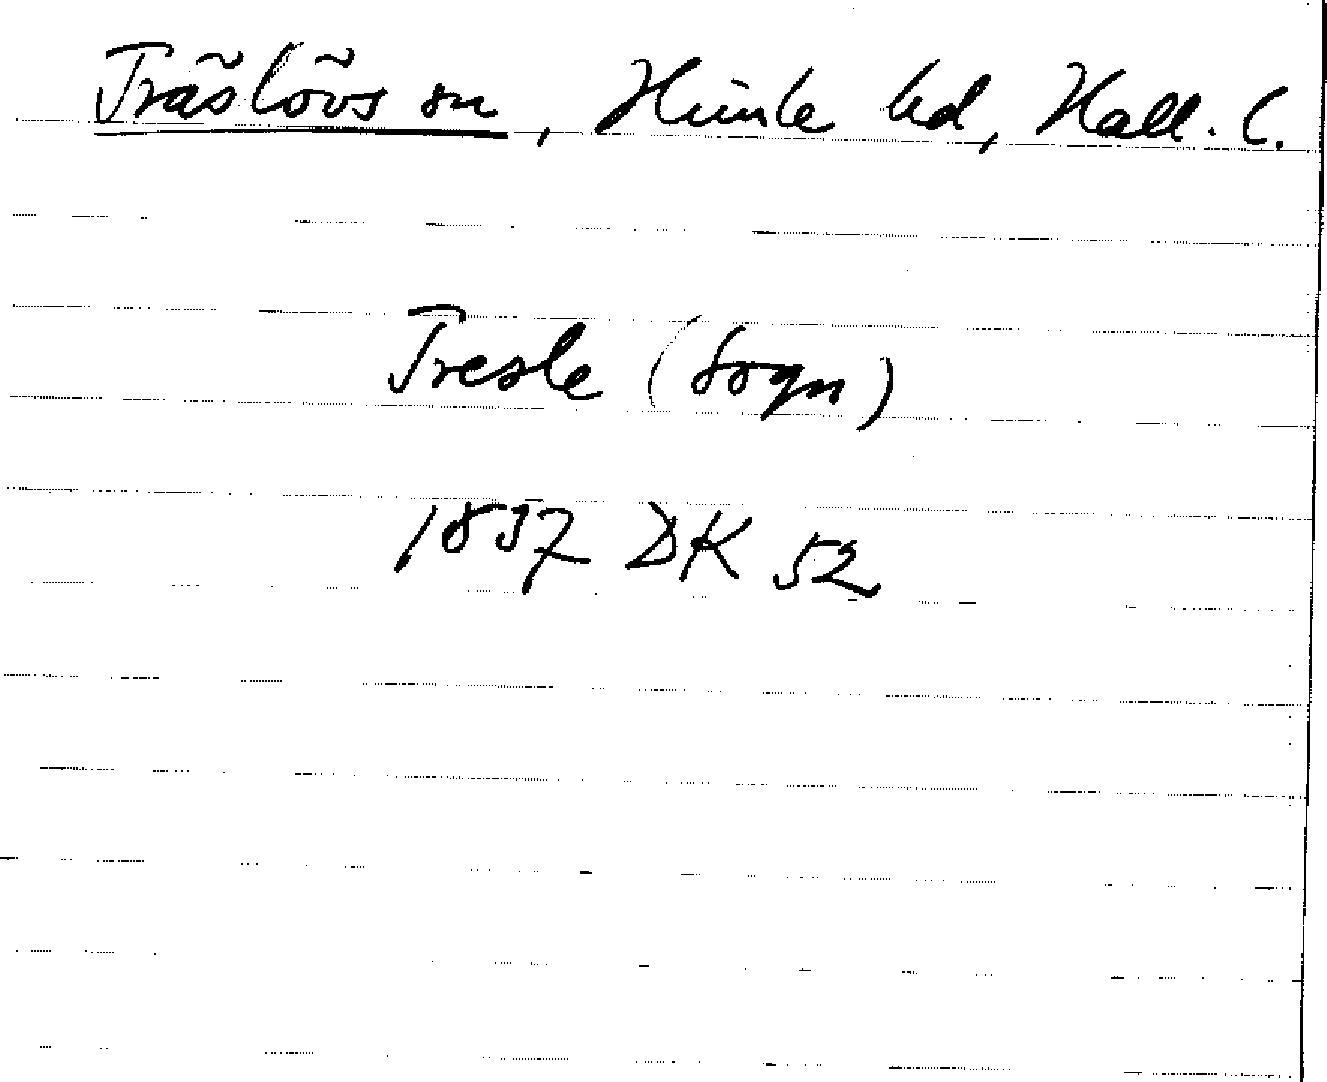 Träslövs sn, Himle hd, Hall. l.
Tresle (Sogn)
1837 DK 52